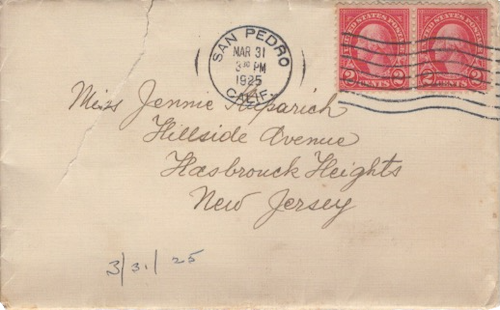 SAN PEDRO
MAR 31
3 30 PM
1925
CALIF.
UNITED STATES POSTAGE
UNITED STATES POSTAGE
2 CENTS 2
2 CENTS 2
Miss Jennie
Hillside Avenue
Hasbrouck Heights
New Jersey
3/31/25